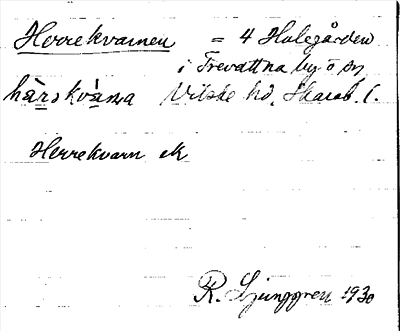 Herrekvarnen = 4 Halegården
i Trevattna by o sn
hàrskvàna Vilske hd, Skarab. l.
Herrekvarn ek
R. Ljunggren 1930